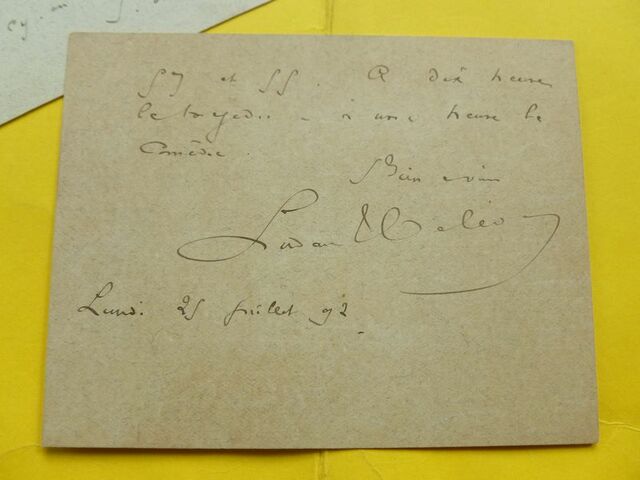 57 et 55. A dix heures
la tragédie - à une heure la
Comédie.
Bien à vous
Ludovic Halévy
Lundi 25 juillet 92.